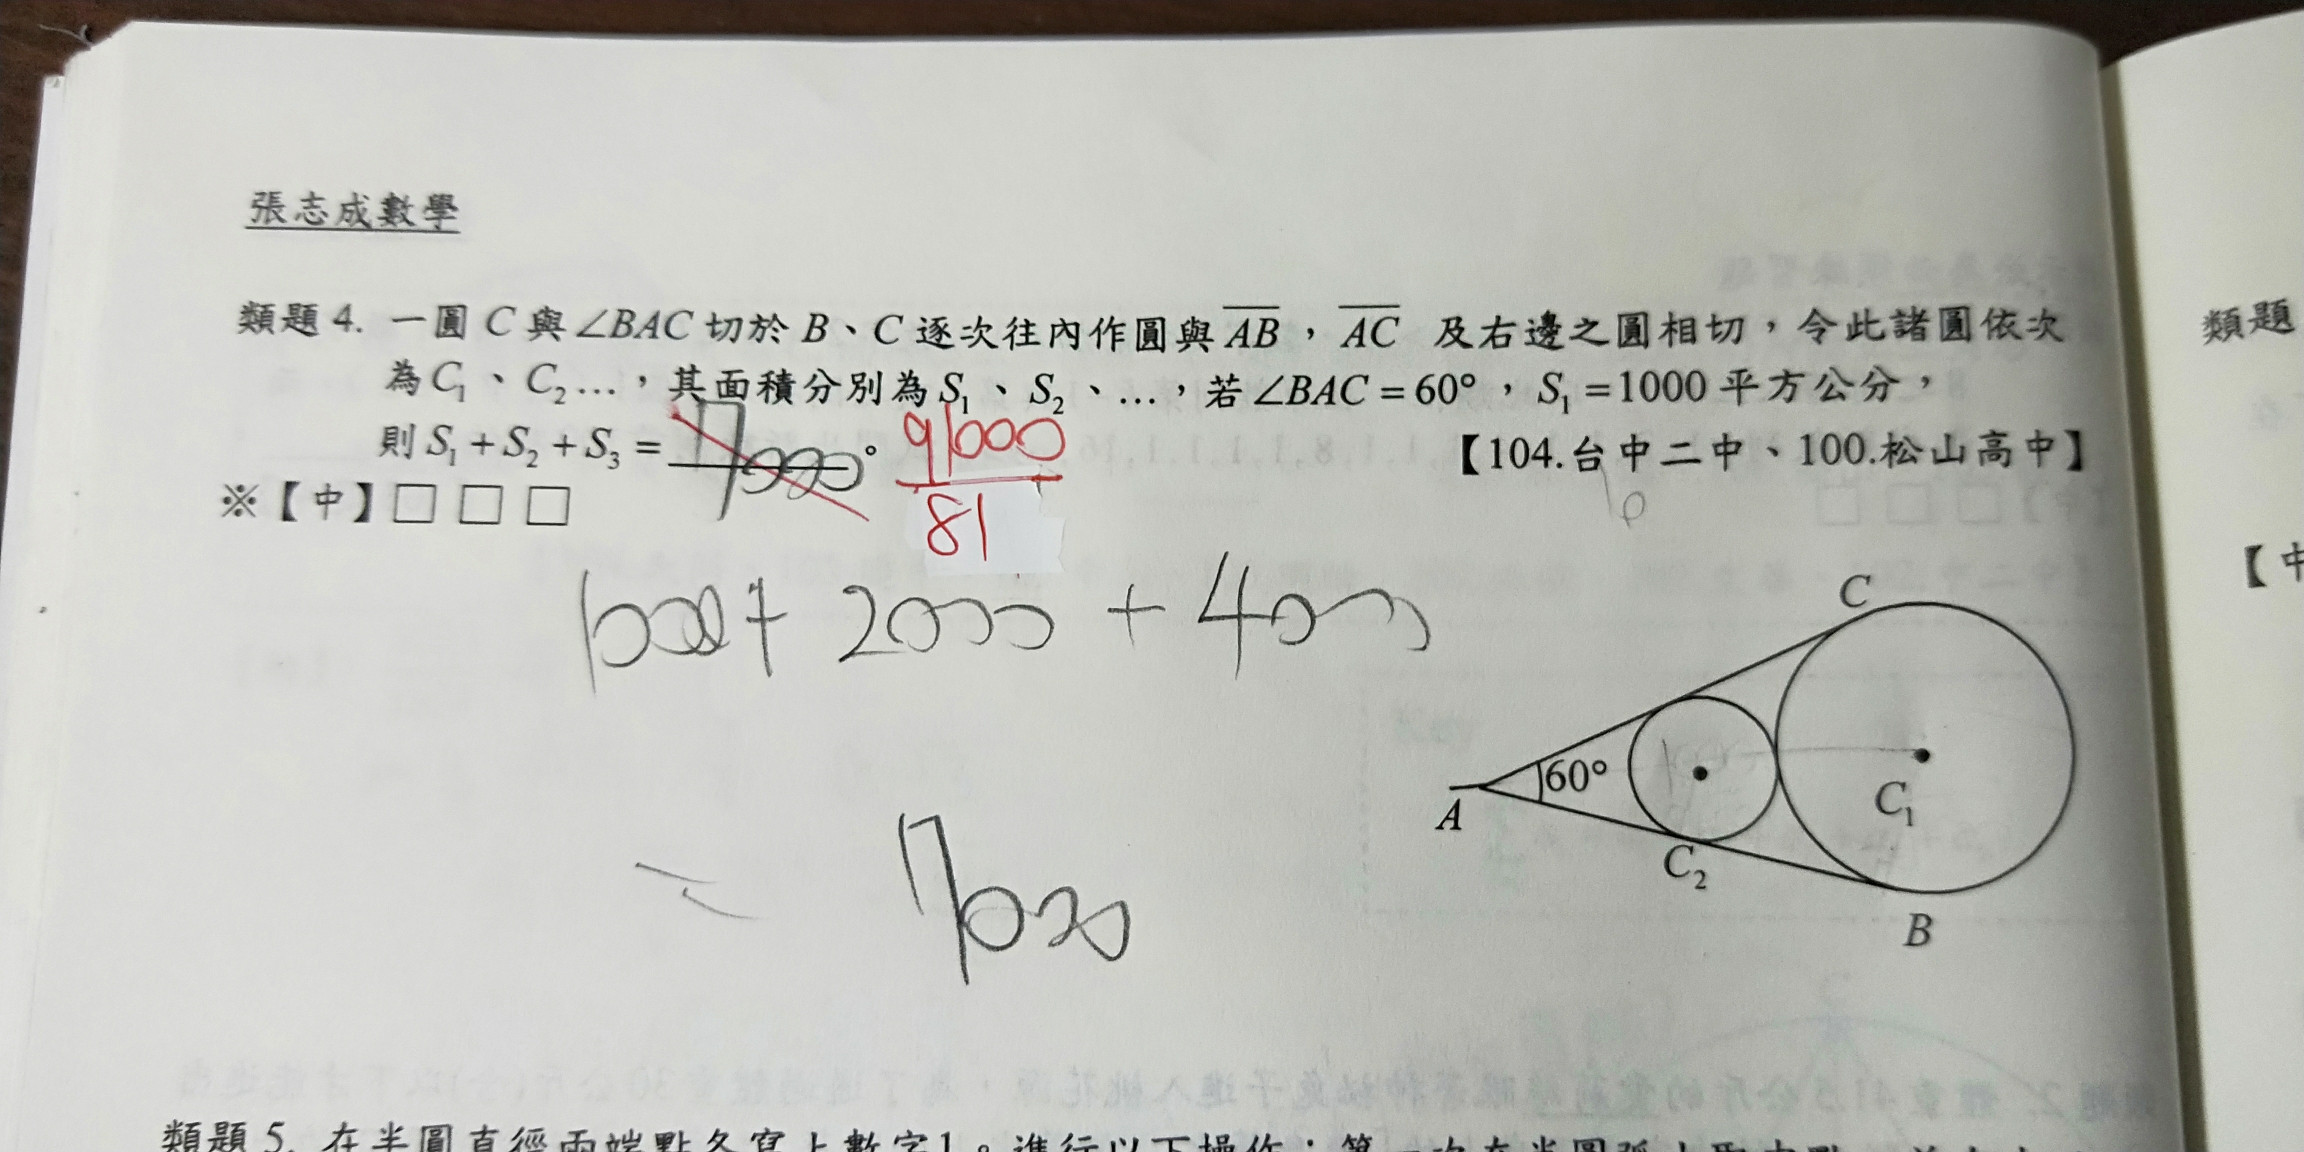 張志成數學
類題4. 一圓 C 與∠BAC 切於 B、C 逐次往內作圓與 AB，AC 及右邊之圓相切，令此諸圓依次
為 C₁、C₂…，其面積分別為 S₁、S₂、…，若∠BAC = 60°，S₁ = 1000 平方公分，
則 S₁ + S₂ + S₃ = 7000。 91000/81 【104.台中二中、100.松山高中】
※【中】□ □ □
1000 + 2000 + 4000
= 7000
C
60°
A
C₁
C₂
B
類題
【中
類題 5. 在半圓直徑兩端點各寫上數字1。進行以下操作：第一次在半圓弧上取中點